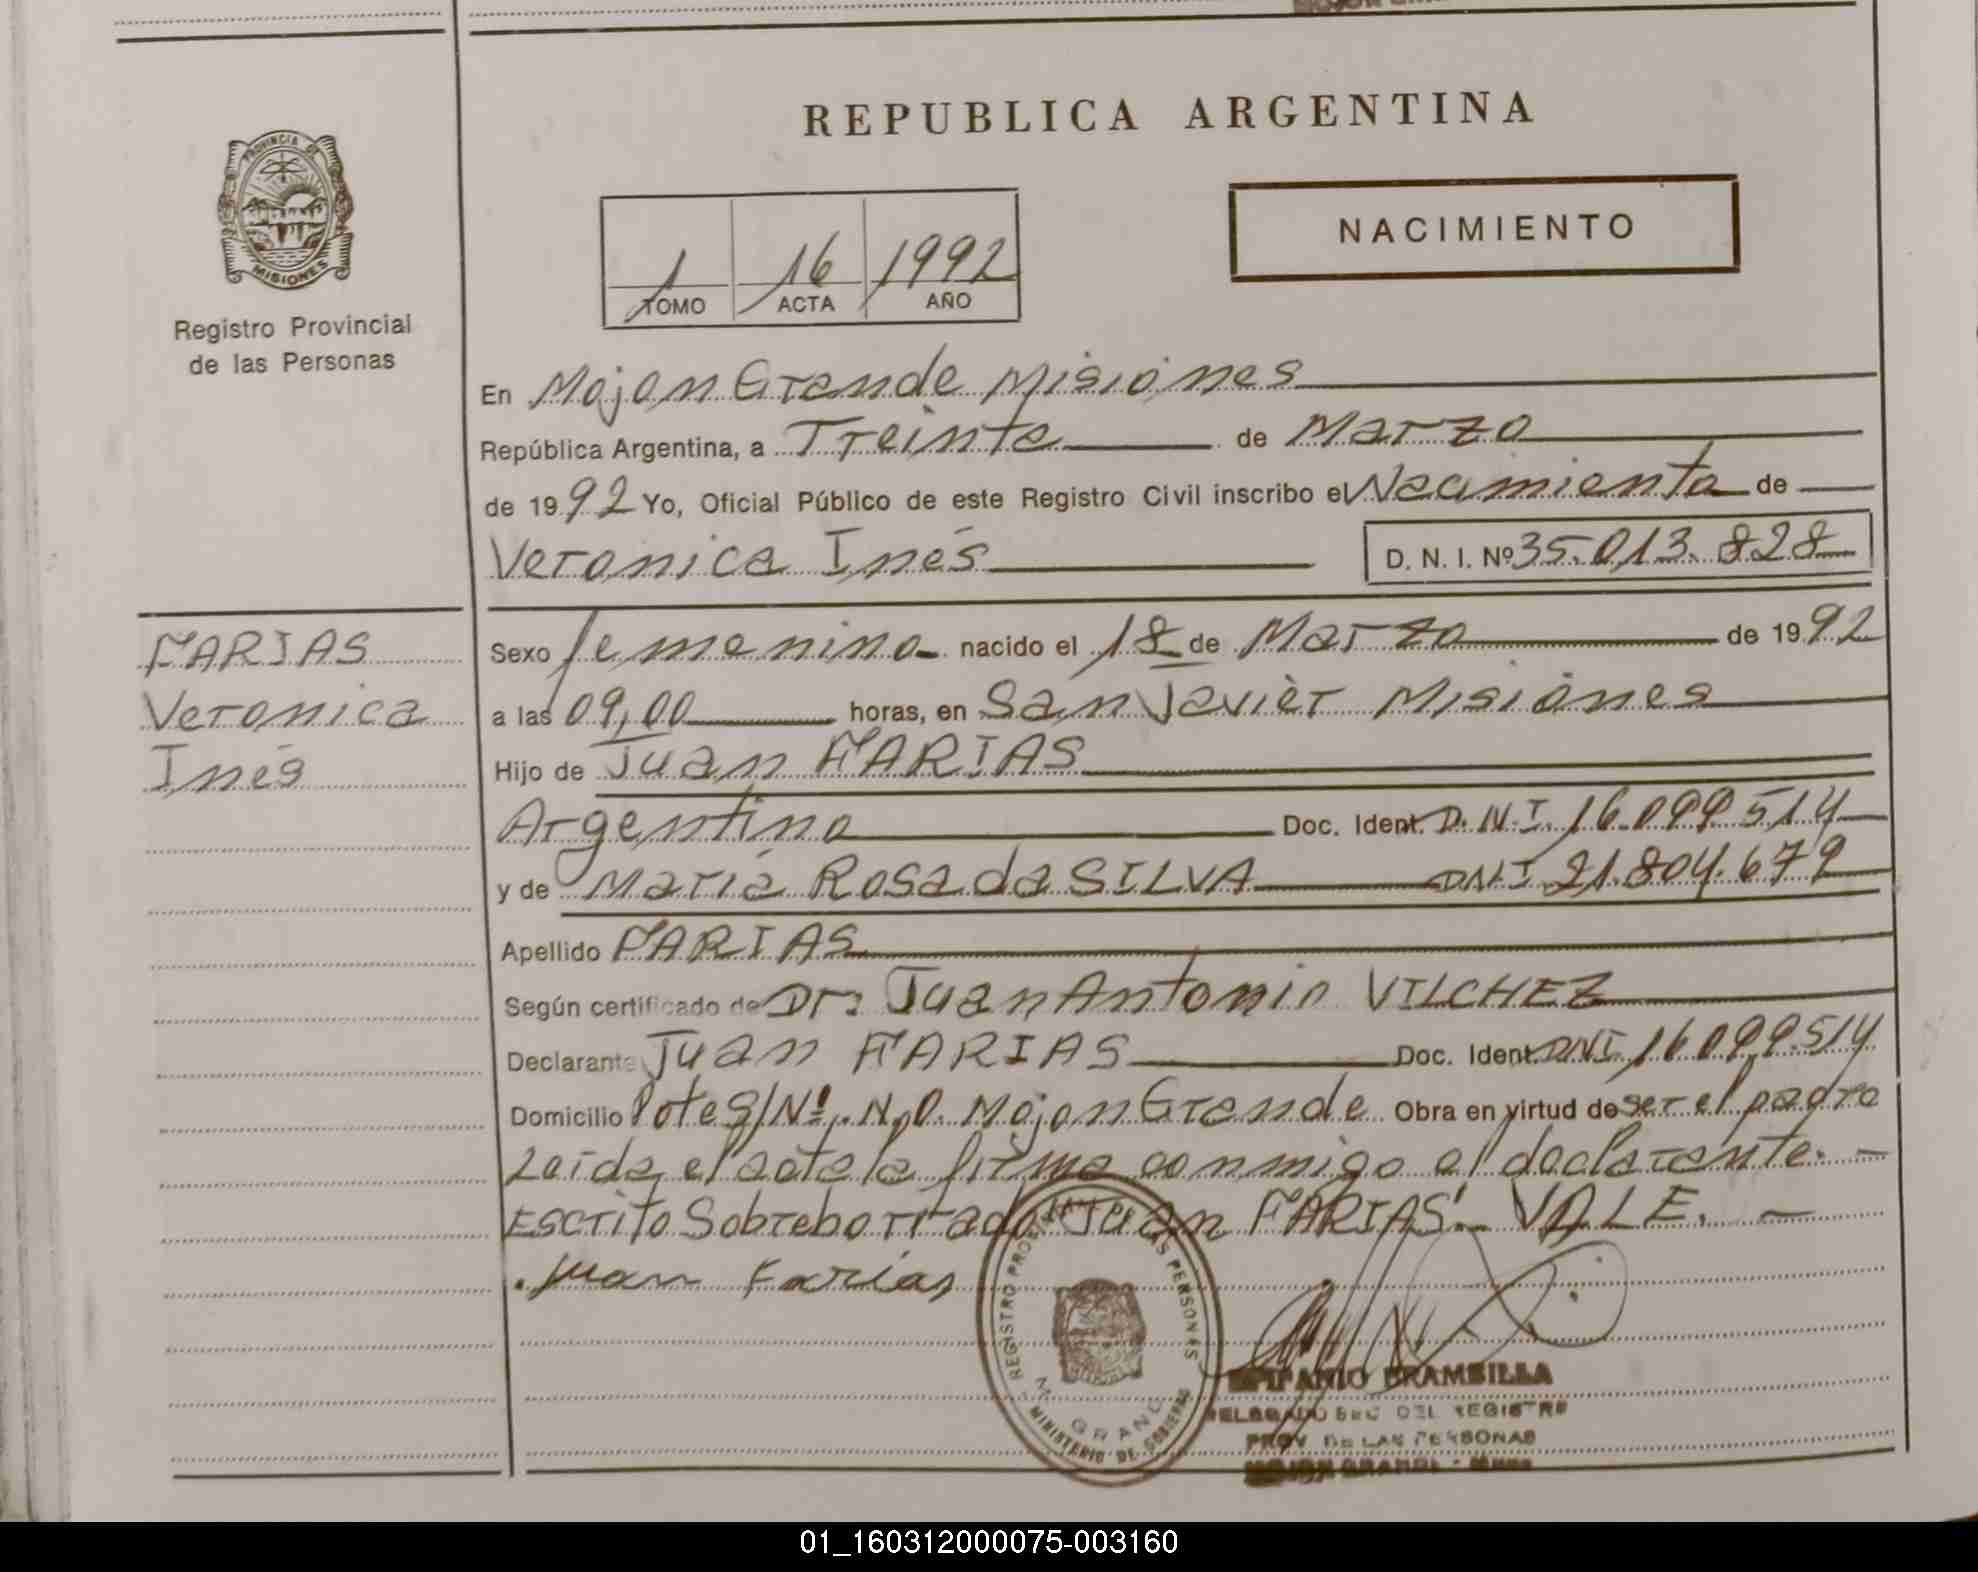 REPUBLICA ARGENTINA
PROVINCIA DE
MISIONES
Registro Provincial
de las Personas
NACIMIENTO
1 16 1992
TOMO ACTA AÑO
En Mojon Grande Misiones
República Argentina, a Treinta de Marzo
de 1992 Yo, Oficial Público de este Registro Civil inscribo el Nacimiento de
Veronica Inés D. N. I. Nº 35.013.828
FARIAS
Veronica
Inés
Sexo femenino nacido el 18 de Marzo de 1992
a las 09,00 horas, en San Javier Misiones
Hijo de Juan FARIAS
Argentino Doc. Ident. D.N.I. 16.099514
y de Maria Rosa da SILVA DNI 21.804.679
Apellido FARIAS
Según certificado de Dr: Juan Antonio VILCHEZ
Declarante Juan FARIAS Doc. Ident. DNI 16099.514
Domicilio Lote S/Nº. N,O. Mojon Grande Obra en virtud de ser el padre
Leida el acta la firma conmigo el declarante. —
Escrito Sobreborrado "Juan FARIAS". VALE. —
Juan Farias
REGISTRO PROVINCIAL DE LAS PERSONAS
M. GRANDE
MINISTERIO DE GOBIERNO
EPIFANIO BRAMBILLA
DELEGADO SEC. DEL REGISTRO
PROV. DE LAS PERSONAS
MOJON GRANDE - Mnes
01_160312000075-003160